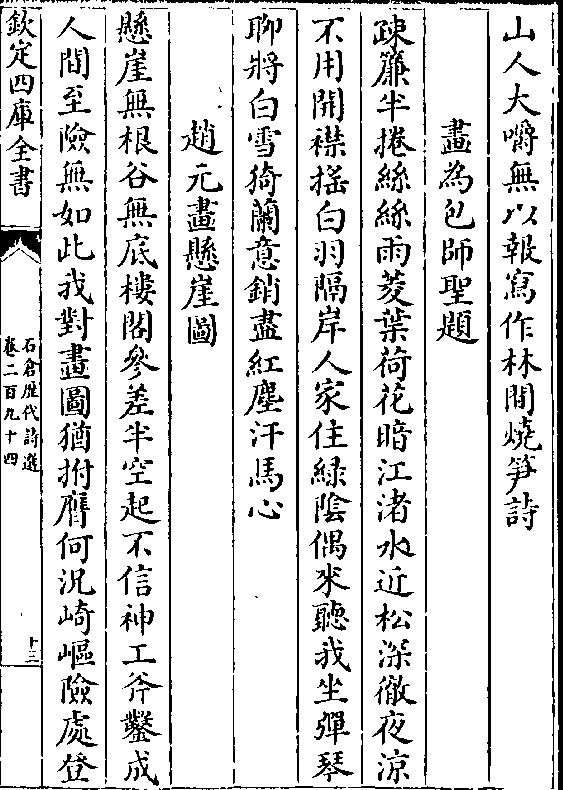 山人大嚼無以報寫作林間燒筍詩
畫為包師聖題
疎簾半捲絲絲雨菱葉荷花暗江渚水近松深徹夜涼
不用開襟揺白羽隔岸人家住緑陰偶來聽我坐彈琴
聊將白雪猗蘭意銷盡紅塵汗馬心
趙元畫懸崖圖
懸崖無根谷無底樓閣參差半空起不信神工斧鑿成
人間至險無如此我對畫圖猶拊膺何況崎嶇險處登
欽定四庫全書
石倉歴代詩選
卷二百九十四
十三